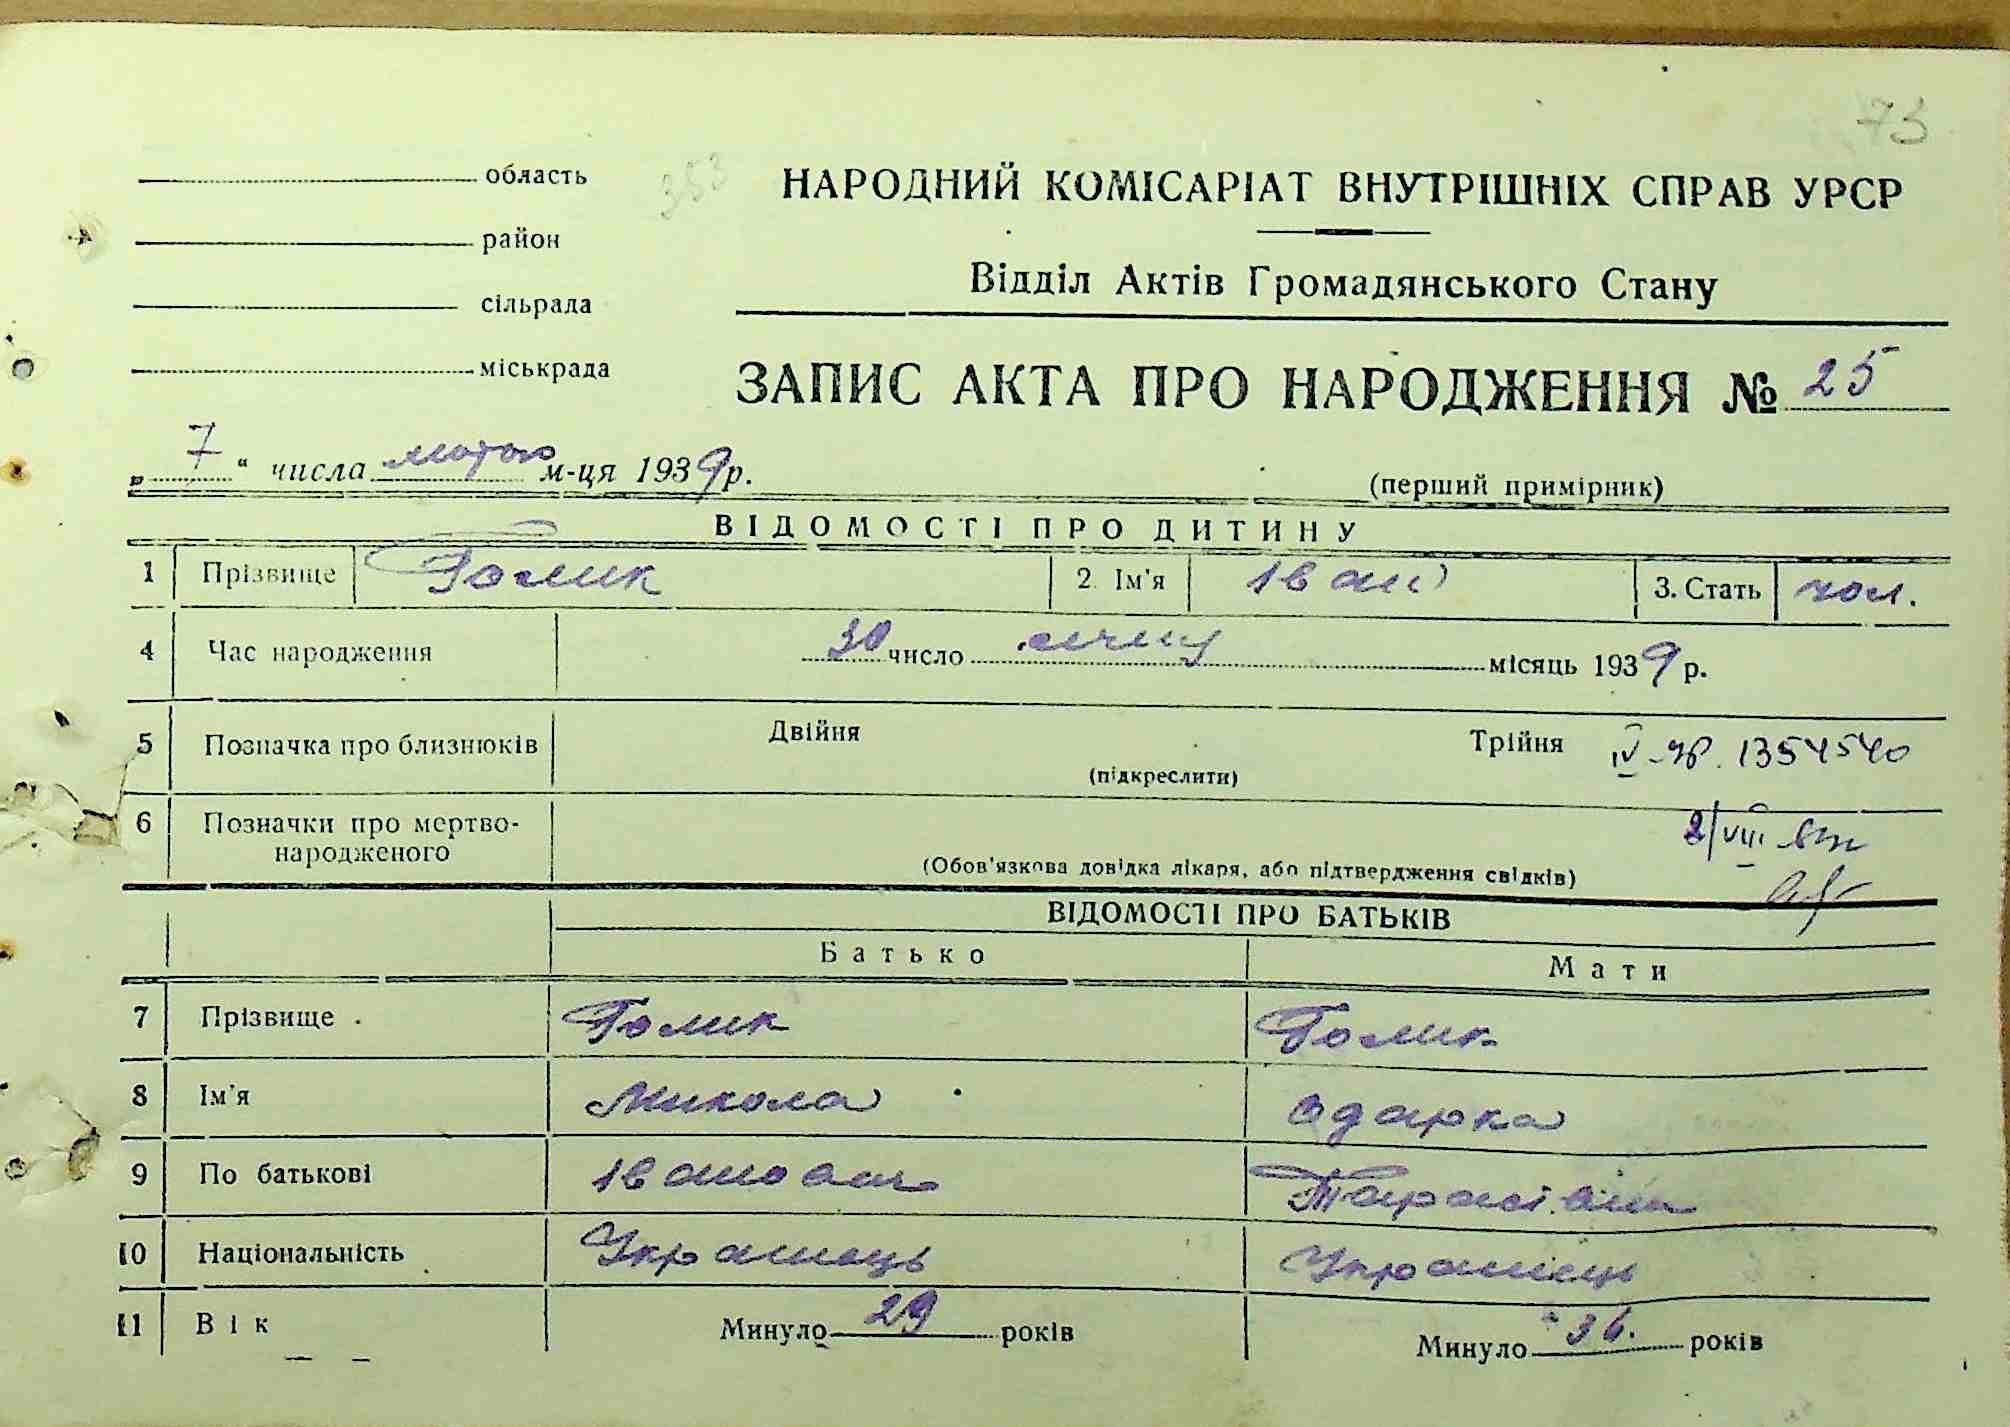 73
область 353 НАРОДНИЙ КОМІСАРІАТ ВНУТРІШНІХ СПРАВ УРСР
район
Відділ Актів Громадянського Стану
сільрада
міськрада
ЗАПИС АКТА ПРО НАРОДЖЕННЯ № 25
„ 7 “ числа лютого м-ця 1939 р.
(перший примірник)
ВІДОМОСТІ ПРО ДИТИНУ
1 Прізвище Голик 2. Ім'я Іван 3. Стать чол.
4 Час народження 30 число січня місяць 1939 р.
5 Позначка про близнюків Двійня Трійня IV-УР. 1354540
(підкреслити)
6 Позначки про мертво-
народженого
2/VIII
(Обов'язкова довідка лікаря, або підтвердження свідків)
ВІДОМОСТІ ПРО БАТЬКІВ
Батько Мати
7 Прізвище Голик Голик
8 Ім'я Микола Одарка
9 По батькові Іванович Тарасівна
10 Національність Українець Українець
11 Вік Минуло 29 років Минуло 36. років